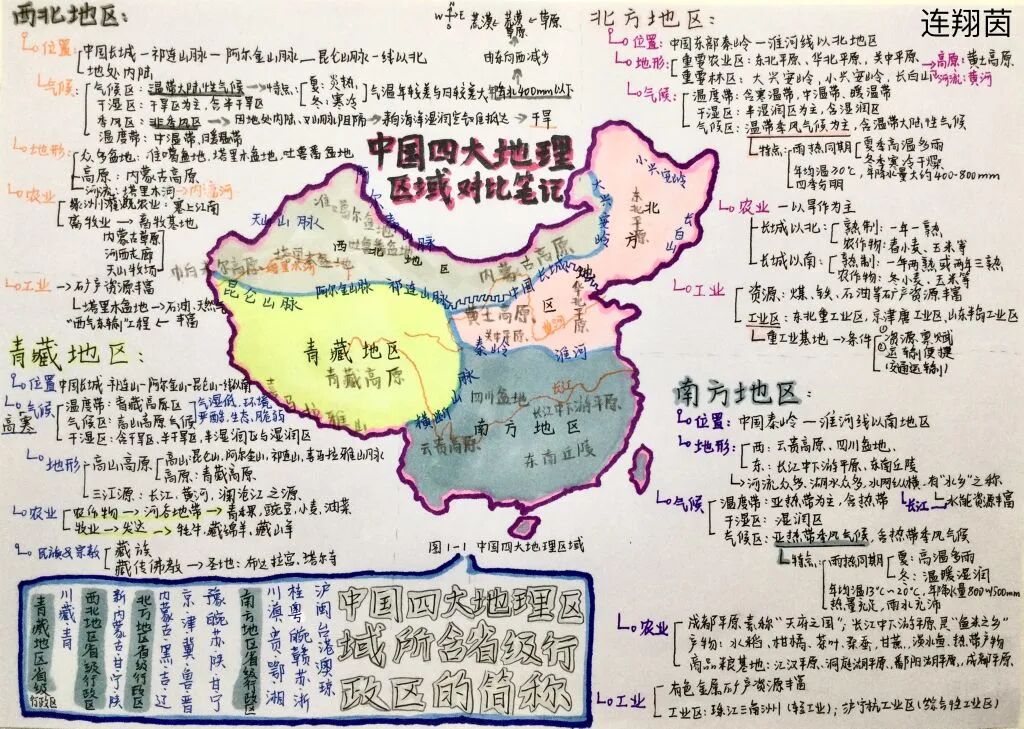 连翔茵
西北地区:
W E 荒漠 荒漠草原 草原
由东向西减少
位置: 中国长城—祁连山脉—阿尔金山脉—昆仑山脉一线以北
地处内陆
气候: 气候区: 温带大陆性气候→特点: 夏: 炎热
冬: 寒冷
气温年较差与日较差大 年降水400mm以下
干湿区: 干旱区为主, 含半干旱区
季风区: 非季风区→因地处内陆, 又山脉阻隔→来自海洋湿润空气难抵达→干旱
温度带: 中温带、暖温带
地形: 众多盆地: 准噶尔盆地、塔里木盆地、吐鲁番盆地
高原: 内蒙古高原
河流: 塔里木河→内流河
农业 绿洲灌溉农业: 塞上江南
畜牧业→畜牧基地
内蒙古草原
河西走廊
天山牧场
工业→矿产资源丰富
塔里木盆地→石油、天然气
"西气东输"工程←丰富
中国四大地理
区域对比笔记
北方地区:
位置: 中国东部秦岭—淮河线以北地区
地形: 重要农业区: 东北平原、华北平原, 关中平原
重要林区: 大兴安岭, 小兴安岭, 长白山
高原: 黄土高原
河流: 黄河
气候: 温度带: 含寒温带, 中温带、暖温带
干湿区: 半湿润区为主, 含湿润区
气候区: 温带季风气候为主, 含温带大陆性气候
特点: 雨热同期 夏季高温多雨
冬季寒冷干燥
年均温>0℃, 年降水量大约400-800mm
四季分明
农业—以旱作为主
长城以北: 熟制: 一年一熟
农作物: 春小麦、玉米等
长城以南: 熟制: 一年两熟或两年三熟
农作物: 冬小麦、玉米等
工业 资源: 煤、铁、石油等矿产资源丰富
工业区: 东北重工业区, 京津唐工业区, 山东半岛工业区
重工业基地→条件 ①资源禀赋
②运输便捷
(交通运输)
小兴安岭
大兴安岭
东北平原
长白山
北方地区
阿尔泰山脉
准噶尔盆地
天山山脉
吐鲁番盆地
塔里木盆地
西北地区
内蒙古高原
帕米尔高原
塔里木河
昆仑山脉
阿尔金山脉
祁连山脉
中国长城
黄土高原
关中平原
黄河
华北平原
青藏地区
青藏高原
秦岭
淮河
喜马拉雅山
横断山脉
四川盆地
长江
长江中下游平原
南方地区
云贵高原
东南丘陵
图1-1 中国四大地理区域
青藏地区:
位置 中国长城-祁连山-阿尔金山-昆仑山一线以南
气候 温度带: 青藏高原区
气温低、环境
严酷、生态、脆弱
高寒
气候区: 高山高原气候
干湿区: 含干旱区、半干旱区, 半湿润区与湿润区
地形 高山高原 高山: 昆仑山, 阿尔金山, 祁连山, 喜马拉雅山脉
高原: 青藏高原
三江源: 长江、黄河、澜沧江之源
农业 农作物→河谷地带→青稞, 豌豆, 小麦, 油菜
牧业→发达→牦牛, 藏绵羊, 藏山羊
民族及宗教 藏族
藏传佛教→圣地: 布达拉宫、塔尔寺
南方地区:
位置: 中国秦岭—淮河线以南地区
地形: 西: 云贵高原, 四川盆地
东: 长江中下游平原、东南丘陵
河流众多, 湖泊众多, 水网纵横, 有"水乡"之称
长江—水能资源丰富
气候 温度带: 亚热带为主, 含热带
干湿区: 湿润区
气候区: 亚热带季风气候, 含热带季风气候
特点: 雨热同期 夏: 高温多雨
冬: 温暖湿润
年均温13℃~20℃, 年降水量800~1500mm
热量充足, 雨水充沛
农业 成都平原素称"天府之国"; 长江中下游平原是"鱼米之乡"
产物: 水稻, 柑橘, 茶叶, 桑蚕, 甘蔗, 淡水鱼, 热带产物
商品粮基地: 江汉平原、洞庭湖平原, 鄱阳湖平原, 成都平原
工业 有色金属矿产资源丰富
工业区: 珠江三角洲(轻工业); 沪宁杭工业区(综合性工业区)
中国四大地理区
域所含省级行
政区的简称
沪·闽·台·港·澳·琼
桂·粤·皖·赣·苏·浙
川·滇·贵·鄂·湘
南方地区省级行政区
豫·皖·苏·陕·甘·宁
京·津·冀·鲁·晋
内蒙古·黑·吉·辽
北方地区省级行政区
新·内蒙古·甘·宁·陕
西北地区省级行政区
川·藏·青
青藏地区省级行政区